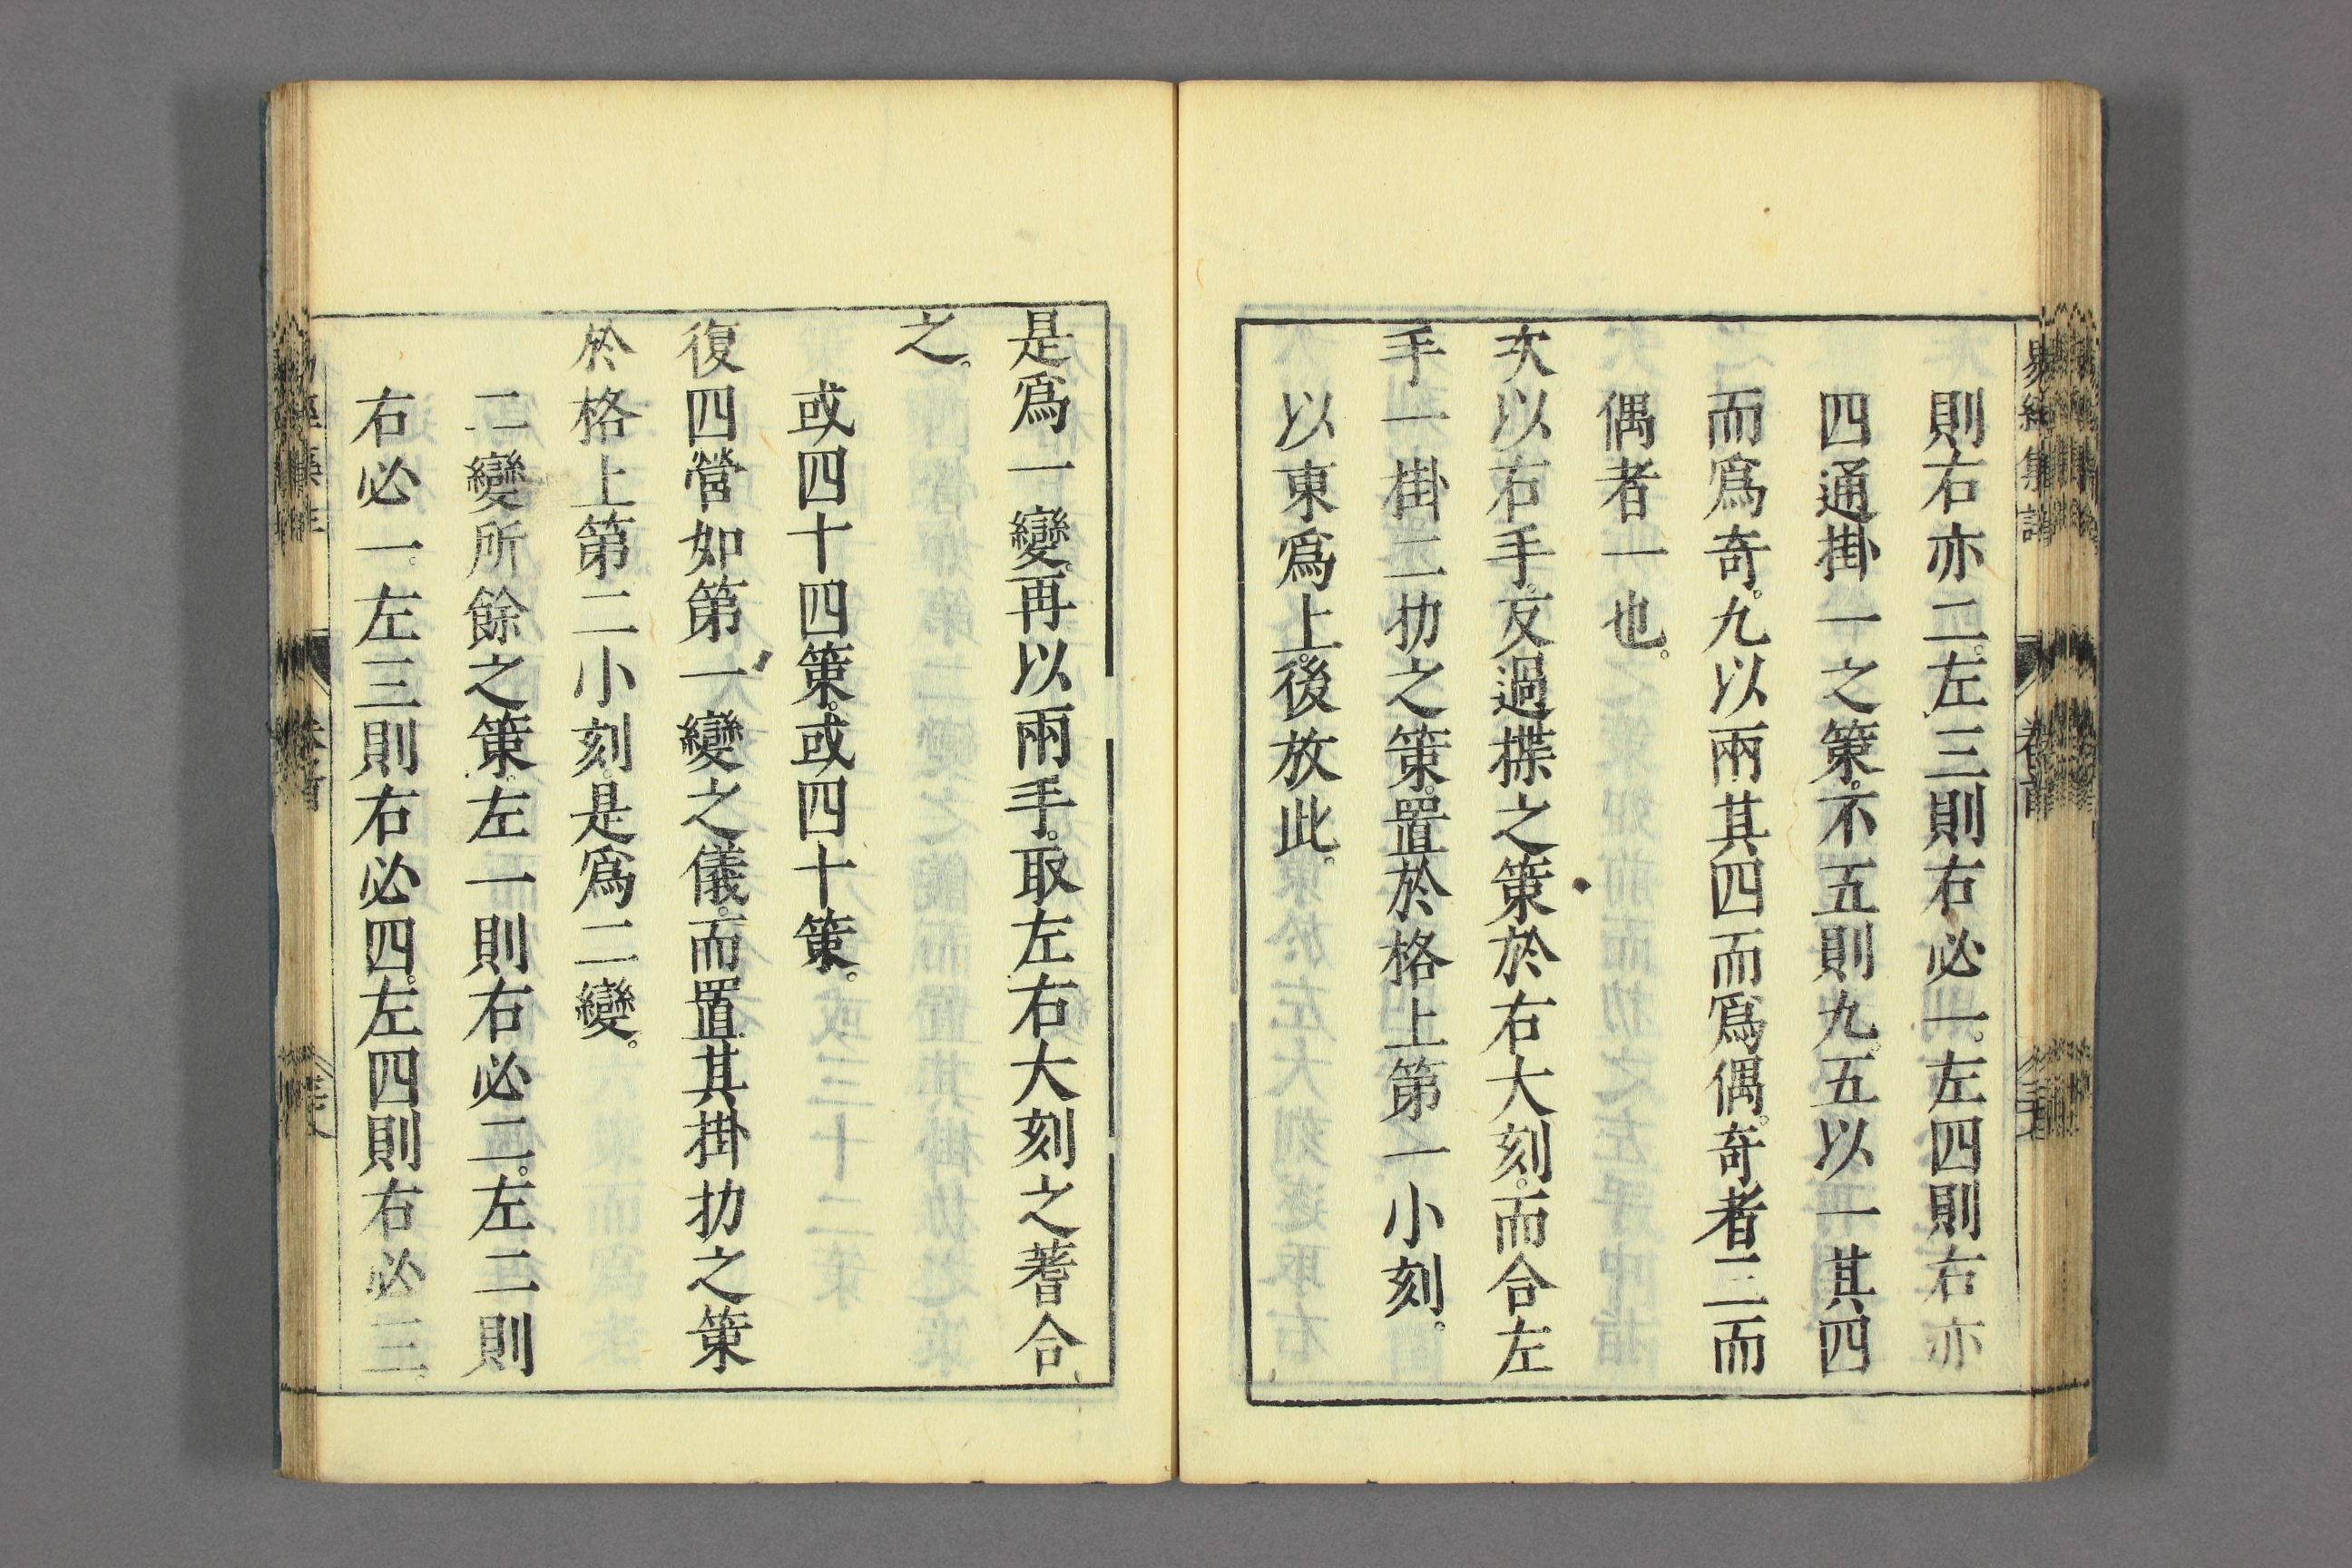 易經集註
卷首
則右亦二。左三則右必一。左四則右亦
四通掛一之策。不五則九。五以一其四
而爲奇。九以兩其四而爲偶。奇者三而
偶者一也。
次以右手。反過揲之策於右大刻。而合左
手一掛二扐之策。置於格上第一小刻。
以東爲上。後放此。
是爲一變。再以兩手。取左右大刻之蓍合
之。
或四十四策。或四十策。
復四營如第一變之儀。而置其掛扐之策
於格上第二小刻。是爲二變。
二變所餘之策。左一則右必二。左二則
右必一。左三則右必四。左四則右必三。